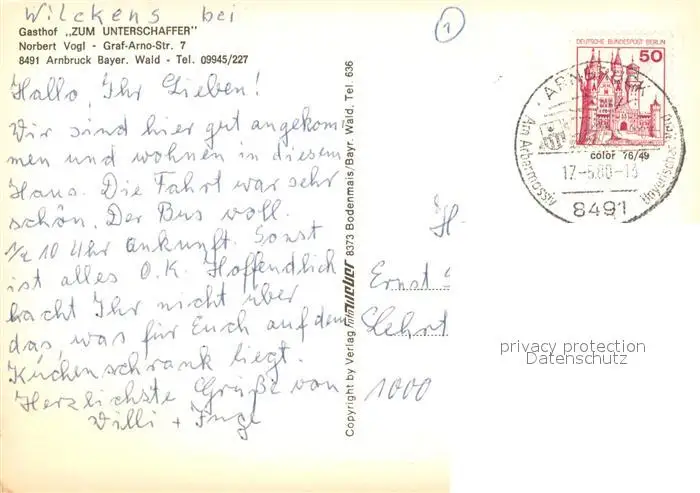 Wilckens bei
Gasthof „ZUM UNTERSCHAFFER"
Norbert Vogl - Graf-Arno-Str. 7
8491 Arnbruck Bayer. Wald - Tel. 09945/227
Hallo, Ihr Lieben!
Wir sind hier gut angekom
men und wohnen in diesem
Haus. Die Fahrt war sehr
schön. Der Bus voll.
1/2 10 Uhr Ankunft. Sonst
ist alles O.K. Hoffendlich
hacht Ihr nicht über
das, was für Euch auf dem
Küchenschrank liegt.
Herzlichste Grüße von
Willi + Inge
Copyright by Verlag foto WEBER 8373 Bodenmais/Bayr. Wald, Tel. 636
1
DEUTSCHE BUNDESPOST BERLIN
50
ARNBRUCK
Am Arbermassiv
Bayerischer Wald
color 76/49
17.-5.80-13
8491
H-
Ernst
1000
privacy protection
Datenschutz